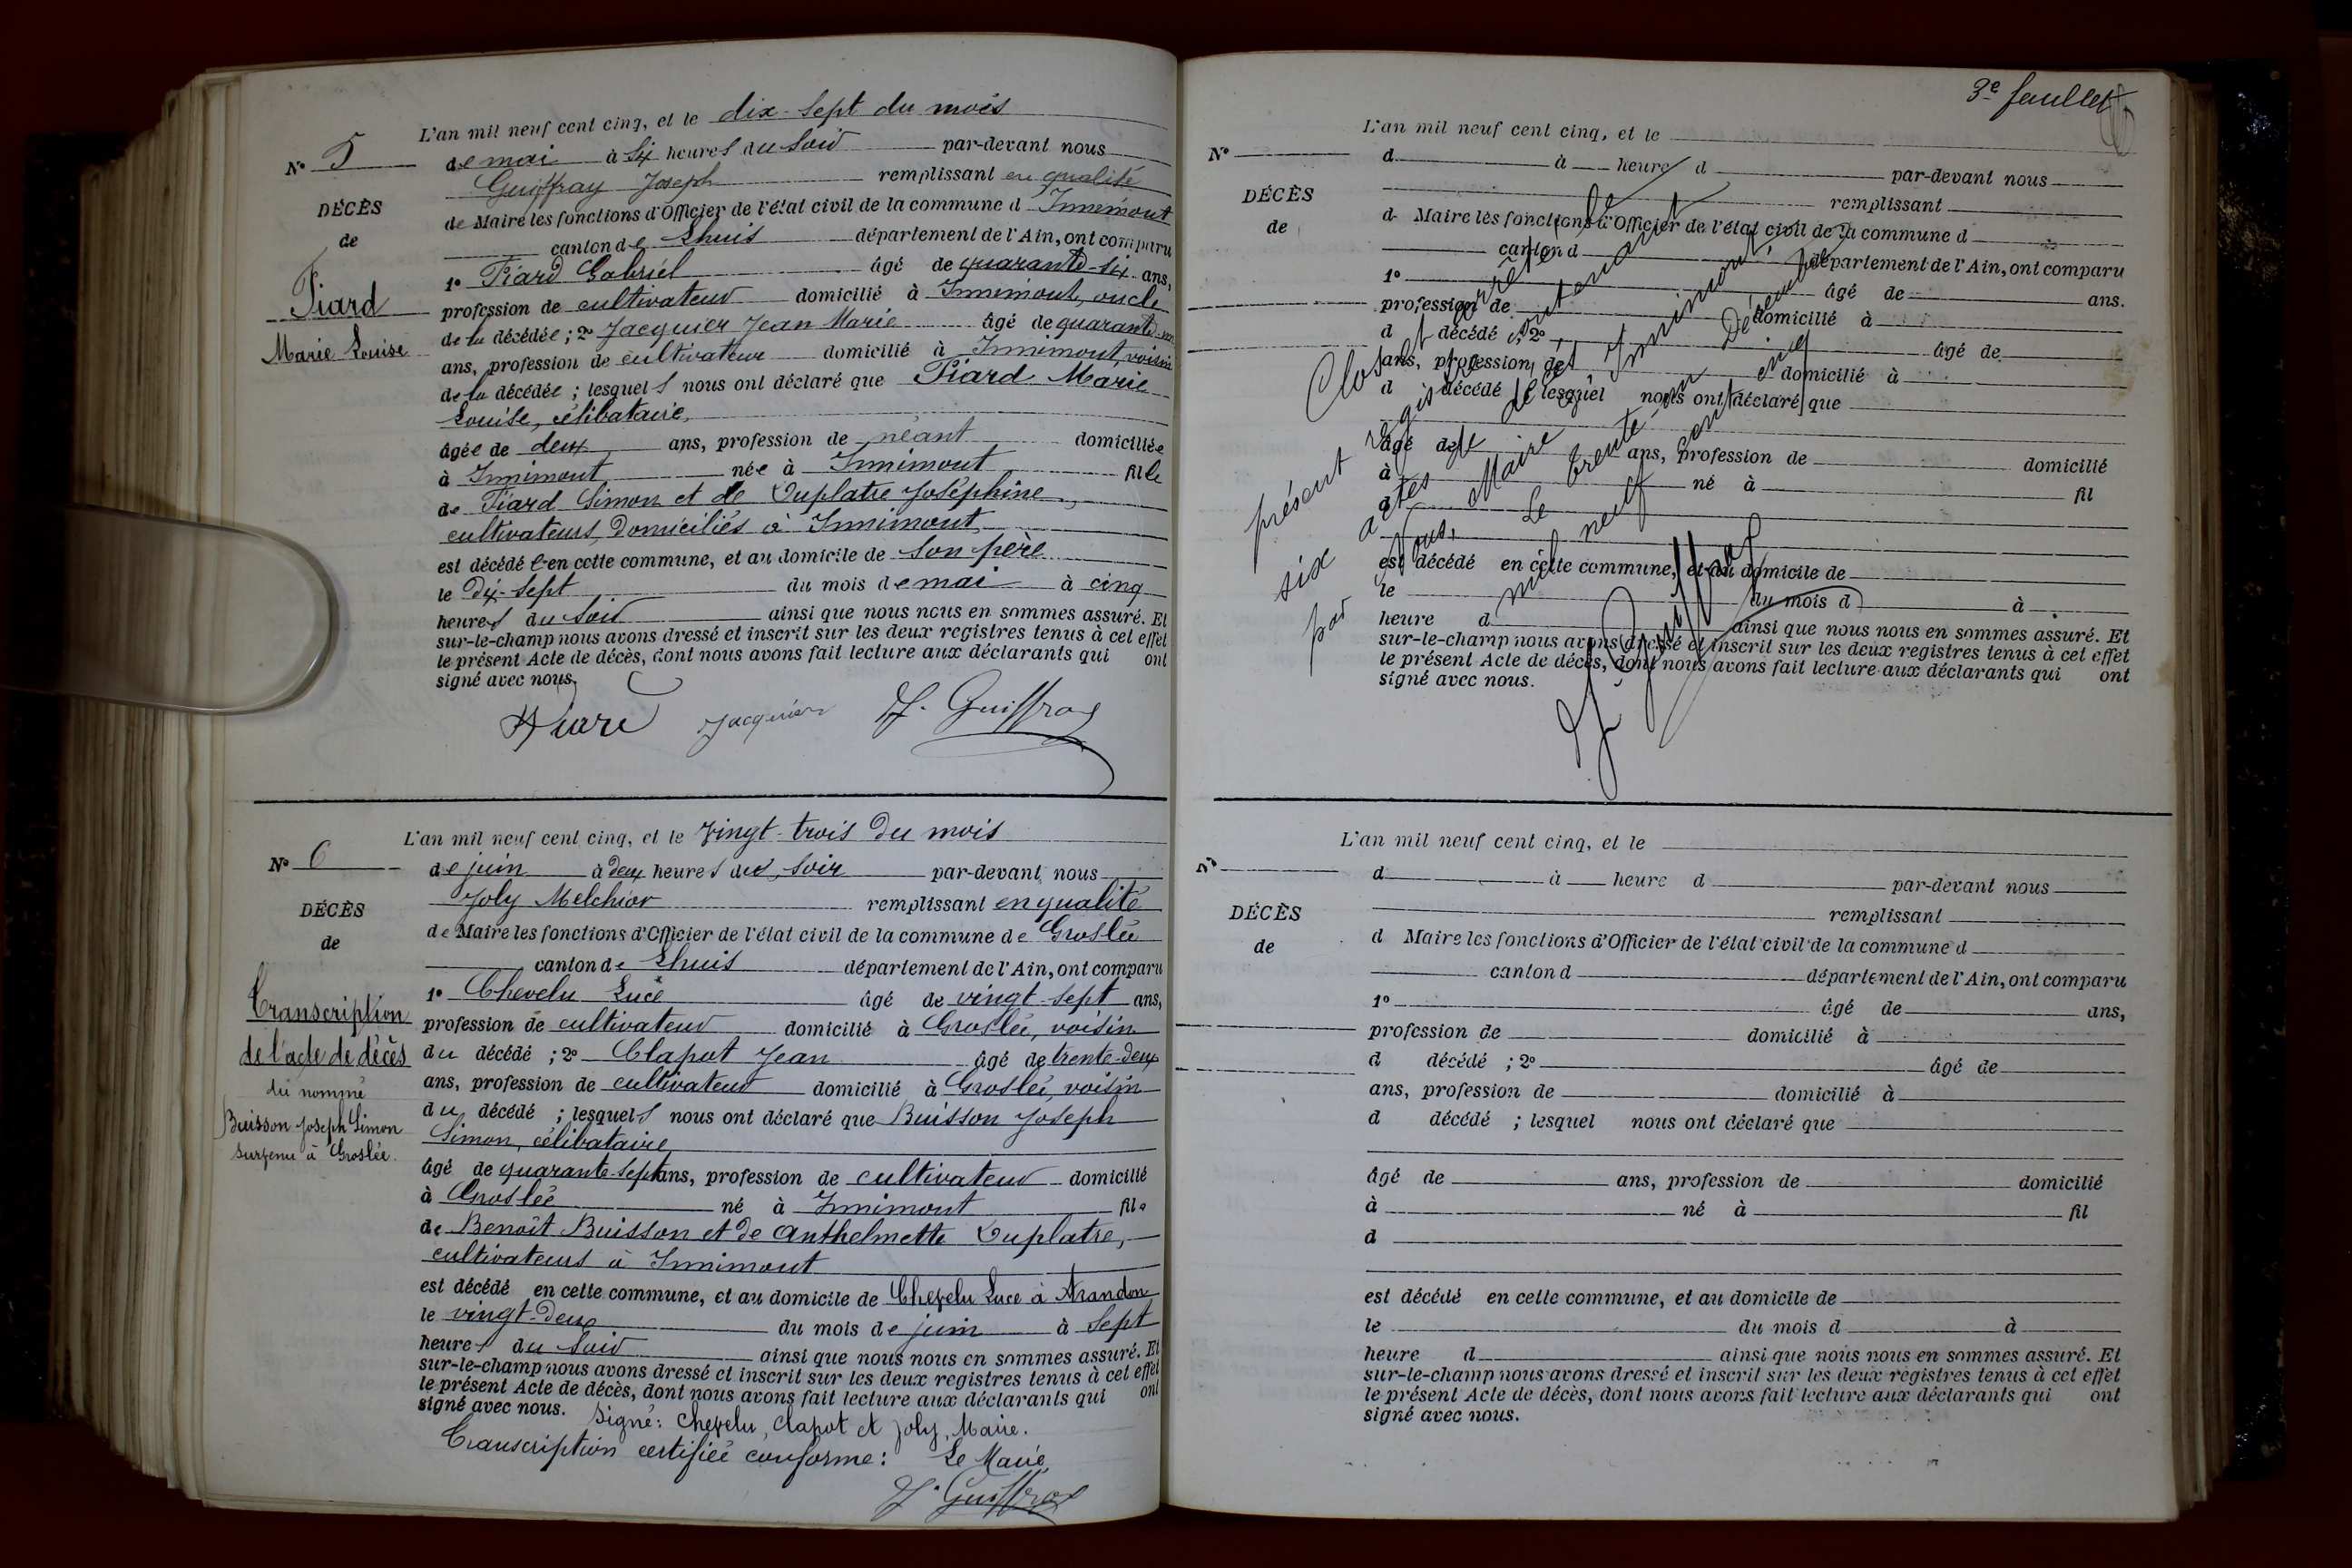 L'an mil neuf cent cinq, et le dix-sept du mois
N° 5
de mai à six heures du soir par-devant nous
Guiffray Joseph remplissant en qualité
DÉCÈS
de Maire les fonctions d'Officier de l'état civil de la commune d Innimont
de
canton de Lhuis département de l'Ain, ont comparu
1° Piard Gabriel âgé de quarante-six ans,
Piard
profession de cultivateur domicilié à Innimont, oncle
de la décédée ; 2° Jacquier Jean Marie âgé de quarante
Marie Louise
ans, profession de cultivateur domicilié à Innimont, voisin
de la décédée ; lesquels nous ont déclaré que Piard Marie
Louise, célibataire,
âgée de deux ans, profession de néant domiciliée
à Innimont née à Innimont fille
de Piard Simon et de Duplatre Joséphine,
cultivateurs, domiciliés à Innimont,
est décédée en cette commune, et au domicile de son père
le dix-sept du mois de mai à cinq
heures du soir ainsi que nous nous en sommes assuré. Et
sur-le-champ nous avons dressé et inscrit sur les deux registres tenus à cet effet
le présent Acte de décès, dont nous avons fait lecture aux déclarants qui ont
signé avec nous.
Piard Jacquier J. Guiffray
L'an mil neuf cent cinq, et le vingt-trois du mois
N° 6
de juin à deux heures du soir par-devant nous
Joly Melchior remplissant en qualité
DÉCÈS
de Maire les fonctions d'Officier de l'état civil de la commune de Groslée
de
canton de Lhuis département de l'Ain, ont comparu
1° Chevelu Luce âgé de vingt-sept ans,
Transcription
profession de cultivateur domicilié à Groslée, voisin
de l'acte de décès
du décédé ; 2° Claput Jean âgé de trente-deux
du nommé
ans, profession de cultivateur domicilié à Groslée, voisin
Buisson Joseph Simon
du décédé ; lesquels nous ont déclaré que Buisson Joseph
survenu à Groslée.
Simon, célibataire
âgé de quarante-sept ans, profession de cultivateur domicilié
à Groslée né à Innimont fils
de Benoît Buisson et de Anthelmette Duplatre,
cultivateurs à Innimont
est décédé en cette commune, et au domicile de Chevelu Luce à Arandon
le vingt-deux du mois de juin à sept
heures du soir ainsi que nous nous en sommes assuré. Et
sur-le-champ nous avons dressé et inscrit sur les deux registres tenus à cet effet
le présent Acte de décès, dont nous avons fait lecture aux déclarants qui ont
signé avec nous. Signé : Chevelu, Clapot et Joly, Maire.
Transcription certifiée conforme : Le Maire,
J. Guiffray
3e feuillet
L'an mil neuf cent cinq, et le
N°
d à heure d par-devant nous
remplissant
DÉCÈS
d Maire les fonctions d'Officier de l'état civil de la commune d
de
canton d département de l'Ain, ont comparu
1° âgé de ans.
profession de domicilié à
d décédé ; 2° âgé de
ans, profession de domicilié à
d décédé ; lesquel nous ont déclaré que
âgé de ans, profession de domicilié
à né à fil
d
est décédé en cette commune, et au domicile de
le du mois d à
heure d ainsi que nous nous en sommes assuré. Et
sur-le-champ nous avons dressé et inscrit sur les deux registres tenus à cet effet
le présent Acte de décès, dont nous avons fait lecture aux déclarants qui ont
signé avec nous.
Clos et arrêté le
présent registre contenant
six actes de décès par
par Nous, Maire d'Innimont,
le trente-un Décembre
mil neuf cent cinq
J. Guiffray
L'an mil neuf cent cinq, et le
N°
d à heure d par-devant nous
remplissant
DÉCÈS
d Maire les fonctions d'Officier de l'état civil de la commune d
de
canton d département de l'Ain, ont comparu
1° âgé de ans,
profession de domicilié à
d décédé ; 2° âgé de
ans, profession de domicilié à
d décédé ; lesquel nous ont déclaré que
âgé de ans, profession de domicilié
à né à fil
d
est décédé en cette commune, et au domicile de
le du mois d à
heure d ainsi que nous nous en sommes assuré. Et
sur-le-champ nous avons dressé et inscrit sur les deux registres tenus à cet effet
le présent Acte de décès, dont nous avons fait lecture aux déclarants qui ont
signé avec nous.